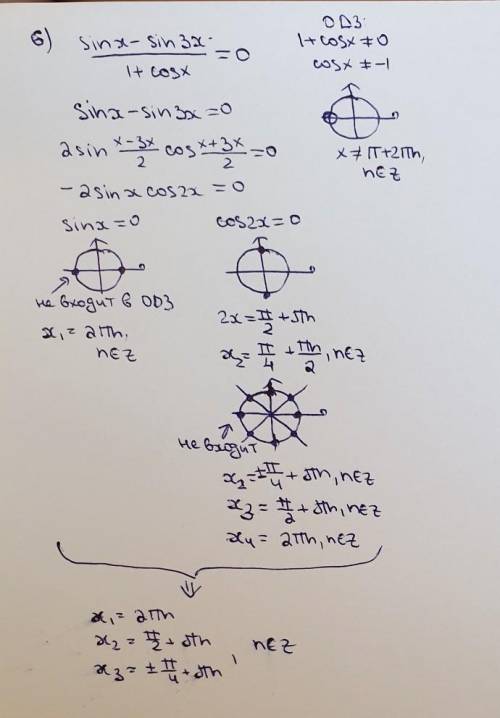 б) (sinx - sin3x)/(1 + cosx) = 0
ОДЗ:
1+cosx ≠ 0
cosx ≠ -1
x ≠ π+2πn,
n∈Z
sinx - sin3x = 0
2sin (x-3x)/2 cos (x+3x)/2 = 0
-2sinx cos2x = 0
sinx = 0
не входит в ОДЗ
x₁ = 2πn,
n∈Z
cos2x = 0
2x = π/2 + πn
x₂ = π/4 + πn/2, n∈Z
не входит
x₂ = ±π/4 + πn, n∈Z
x₃ = π/2 + πn, n∈Z
x₄ = 2πn, n∈Z
⇓
x₁ = 2πn
x₂ = π/2 + πn
x₃ = ±π/4 + πn, n∈Z